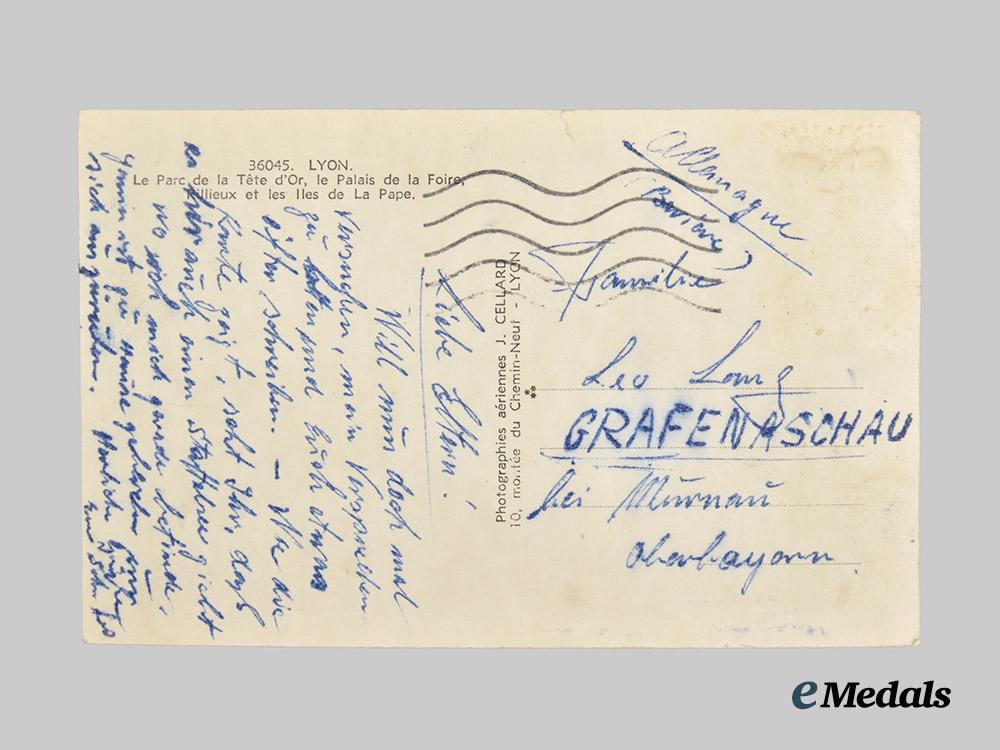 36045. LYON.
Le Parc de la Tête d'Or, le Palais de la Foire,
Rillieux et les Iles de La Pape.
Liebe Eltern!
Will nun doch mal
versuchen, mein Versprechen
zu halten und Euch etwas
öfter schreiben. – Wie die
Karte zeigt, seht Ihr, daß
es hier auch einen Staffelsee giebt
wo ich mich gerade befinde.
sich auszuruhen. Herzliche Grüße
Euer Sohn
Photographies aériennes J. CELLARD
10, montée du Chemin-Neuf - LYON
Allemagne
Bavière
Familie
Leo Lang
GRAFENASCHAU
bei Murnau
Oberbayern.
eMedals